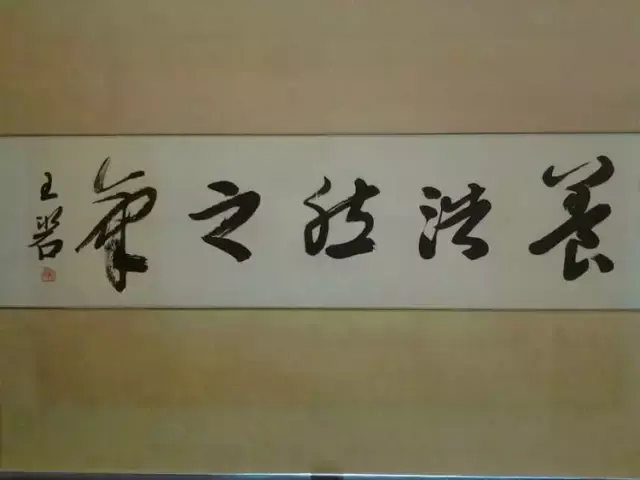 養浩然之氣
王